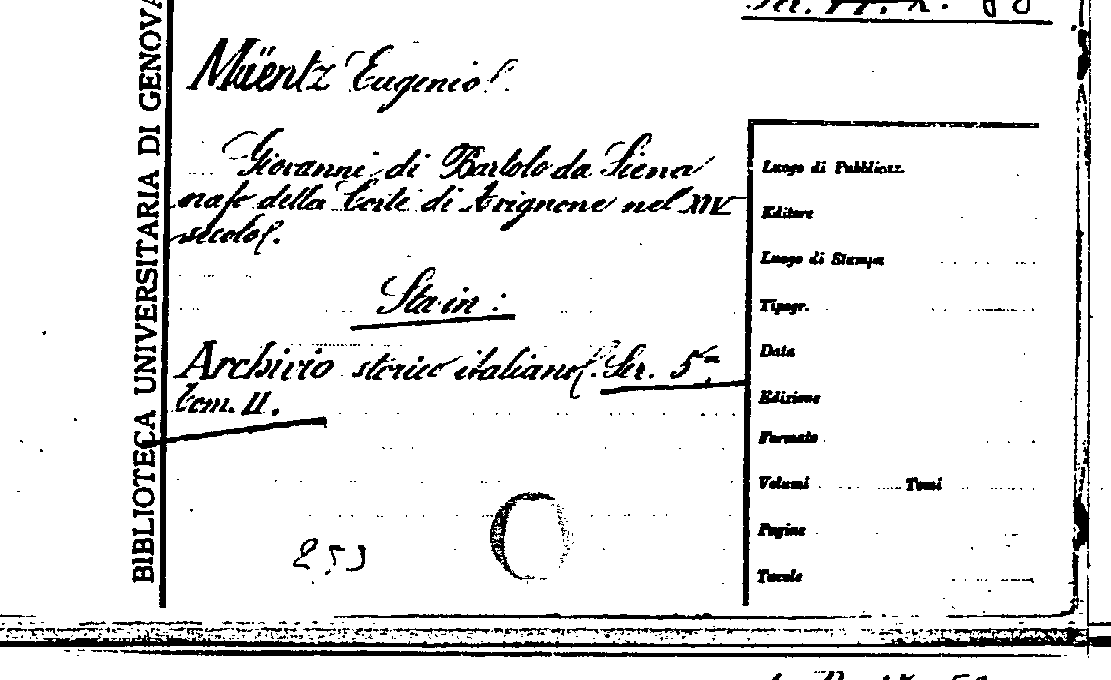 BIBLIOTECA UNIVERSITARIA DI GENOVA
Müentz Eugenio.
Giovanni di Bartolo da Siena
della Corte di Avignone nel XIV
secolo.
Sta in:
Archivio storico italiano. Ser. 5ª
tom. II.
Luogo di Pubblicaz.
Editore
Luogo di Stampa
Tipogr.
Data
Edizione
Formato
Volumi Tomi
Pagine
Tavole